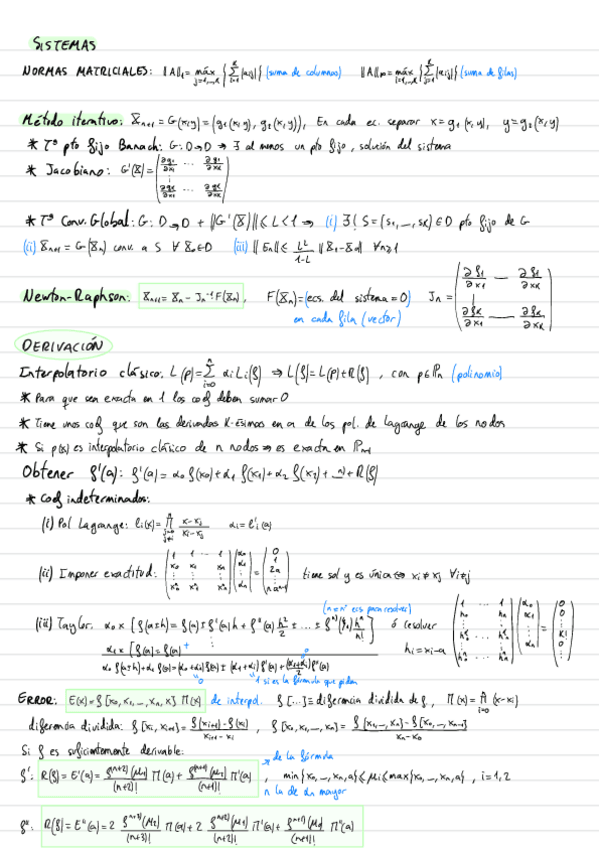 SISTEMAS
NORMAS MATRICIALES: ||A||₁ = máx_{j=1,...,k} {Σ_{i=1}^{k} |aij|} (suma de columnas) ||A||∞ = máx_{i=1,...,k} {Σ_{j=1}^{k} |aij|} (suma de filas)
Método iterativo: X̄n+1 = G(x,y) = (g1(x,y), g2(x,y)), En cada ec. separar x = g1(x,y), y = g2(x,y)
* Tº pto fijo Banach: G: D→D ⇒ ∃ al menos un pto fijo, solución del sistema
* Jacobiano: G'(X̄) = (∂g1/∂x1 ... ∂g1/∂xk ⋮ ∂gk/∂x1 ... ∂gk/∂xk)
* Tº Conv. Global: G: D→D + ||G'(X̄)|| ≤ L < 1 ⇒ (i) ∃! S = (s1,...,sk) ∈ D pto fijo de G
(ii) X̄n+1 = G(X̄n) conv. a S ∀ X̄0 ∈ D (iii) ||En|| ≤ Lⁿ/(1-L) ||X̄1 - X̄0|| ∀n≥1
Newton-Raphson: X̄n+1 = X̄n - Jn⁻¹ F(X̄n), F(X̄n) = (ecs. del sistema = 0) Jn = (∂f1/∂x1 — ∂f1/∂xk ⋮ ∂fk/∂x1 — ∂fk/∂xk)
en cada fila (vector)
DERIVACIÓN
Interpolatorio clásico: L(p) = Σ_{i=0}^{n} αi Li(f) ⇒ L(f) = L(p) + R(f), con p∈Pn (polinomio)
* Para que sea exacta en 1 los coef deben sumar 0
* Tiene unos coef que son las derivadas k-ésimas en a de los pol. de Lagrange de los nodos
* Si p(x) es interpolatorio clásico de n nodos ⇒ es exacta en Pn-1
Obtener f'(a): f'(a) = α0 f(x0) + α1 f(x1) + α2 f(x2) + ... + R(f)
* Coef indeterminados:
(i) Pol Lagrange: li(x) = Π_{j=0, j≠i}^{n} (x-xj)/(xi-xj) αi = l'i(a)
(ii) Imponer exactitud: (1 1 ... 1 x0 x1 ... xn ⋮ x0ⁿ x1ⁿ ... xnⁿ)(α0 α1 ⋮ αn) = (0 1 2a ⋮ n aⁿ⁻¹) tiene sol y es única ⇔ xi ≠ xj ∀i≠j
(n = nº ecs para resolver)
(iii) Taylor: α0 x [f(a±h) = f(a) ± f'(a)h + f''(a) h²/2 ± ... ± fⁿ⁾(ξ) hⁿ/n!] ó resolver (1 ... 1 h0 ... hn ⋮ h0ⁿ ... hnⁿ)(α0 α1 ⋮ αn) = (0 0 ⋮ k! ⋮ 0)
α1 x [f(a) = f(a) + 0 hi = xi - a
α0 f(a±h) + α1 f(a) = (α0+α1) f(a) ± (α1+α2) f'(a) + (α1+α2)/2 f''(a)
=0 1 si es la fórmula que piden
ERROR: E(x) = f[x0, x1, ..., xn, x] Π(x) de interpol. f[...] ≡ diferencia dividida de f, Π(x) = Π_{i=0}^{n} (x-xi)
diferencia dividida: f[xi, xi+1] = (f(xi+1) - f(xi))/(xi+1 - xi), f[x0, x1, ..., xn] = (f[x1, ..., xn] - f[x0, ..., xn-1])/(xn - x0)
Si f es suficientemente derivable:
de la fórmula
f': R(f) = E'(a) = fⁿ⁺²⁾(μ2)/(n+2)! Π(a) + fⁿ⁺¹⁾(μ1)/(n+1)! Π'(a), min{x0, ..., xn, a} ≤ μi ≤ max{x0, ..., xn, a}, i = 1,2
n la de αn mayor
f'': R(f) = E''(a) = 2 fⁿ⁺³⁾(μ3)/(n+3)! Π(a) + 2 fⁿ⁺²⁾(μ2)/(n+2)! Π'(a) + fⁿ⁺¹⁾(μ1)/(n+1)! Π''(a)